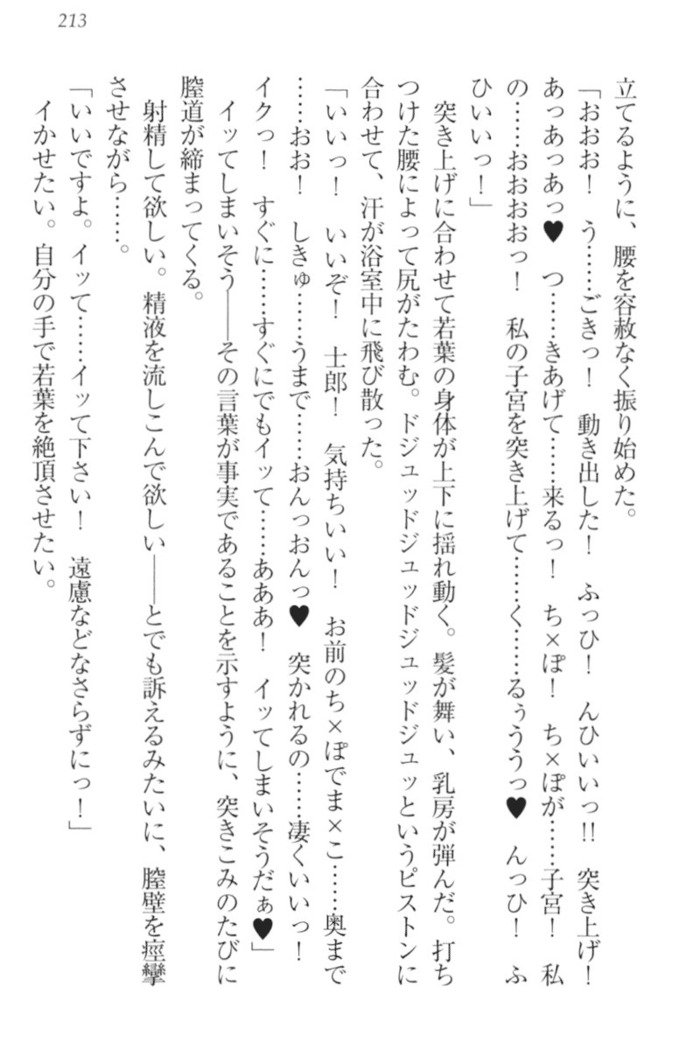 213
立てるように、腰を容赦なく振り始めた。
「おおお！　う……ごきっ！　動き出した！　ふっひ！　んひいいっ!!　突き上げ！
あっあっあっ♥　つ……きあげて……来るっ！　ち×ぽ！　ち×ぽが……子宮！　私
の……おおおおっ！　私の子宮を突き上げて……く……るぅううっ♥　んっひ！　ふ
ひいいっ！」
　突き上げに合わせて若葉の身体が上下に揺れ動く。髪が舞い、乳房が弾んだ。打ち
つけた腰によって尻がたわむ。ドジュッドジュッドジュッというピストンに
合わせて、汗が浴室中に飛び散った。
「いいっ！　いいぞ！　士郎！　気持ちいい！　お前のち×ぽでま×こ……奥まで
……おお！　しきゅ……うまで……おんっおんっ♥　突かれるの……凄くいいっ！
イクっ！　すぐに……すぐにでもイッて……あああ！　イッてしまいそうだぁ♥」
　イッてしまいそう――その言葉が事実であることを示すように、突きこみのたびに
膣道が締まってくる。
　射精して欲しい。精液を流しこんで欲しい――とでも訴えるみたいに、膣壁を痙攣
させながら……。
「いいですよ。イッて……イッて下さい！　遠慮などなさらずにっ！」
　イかせたい。自分の手で若葉を絶頂させたい。